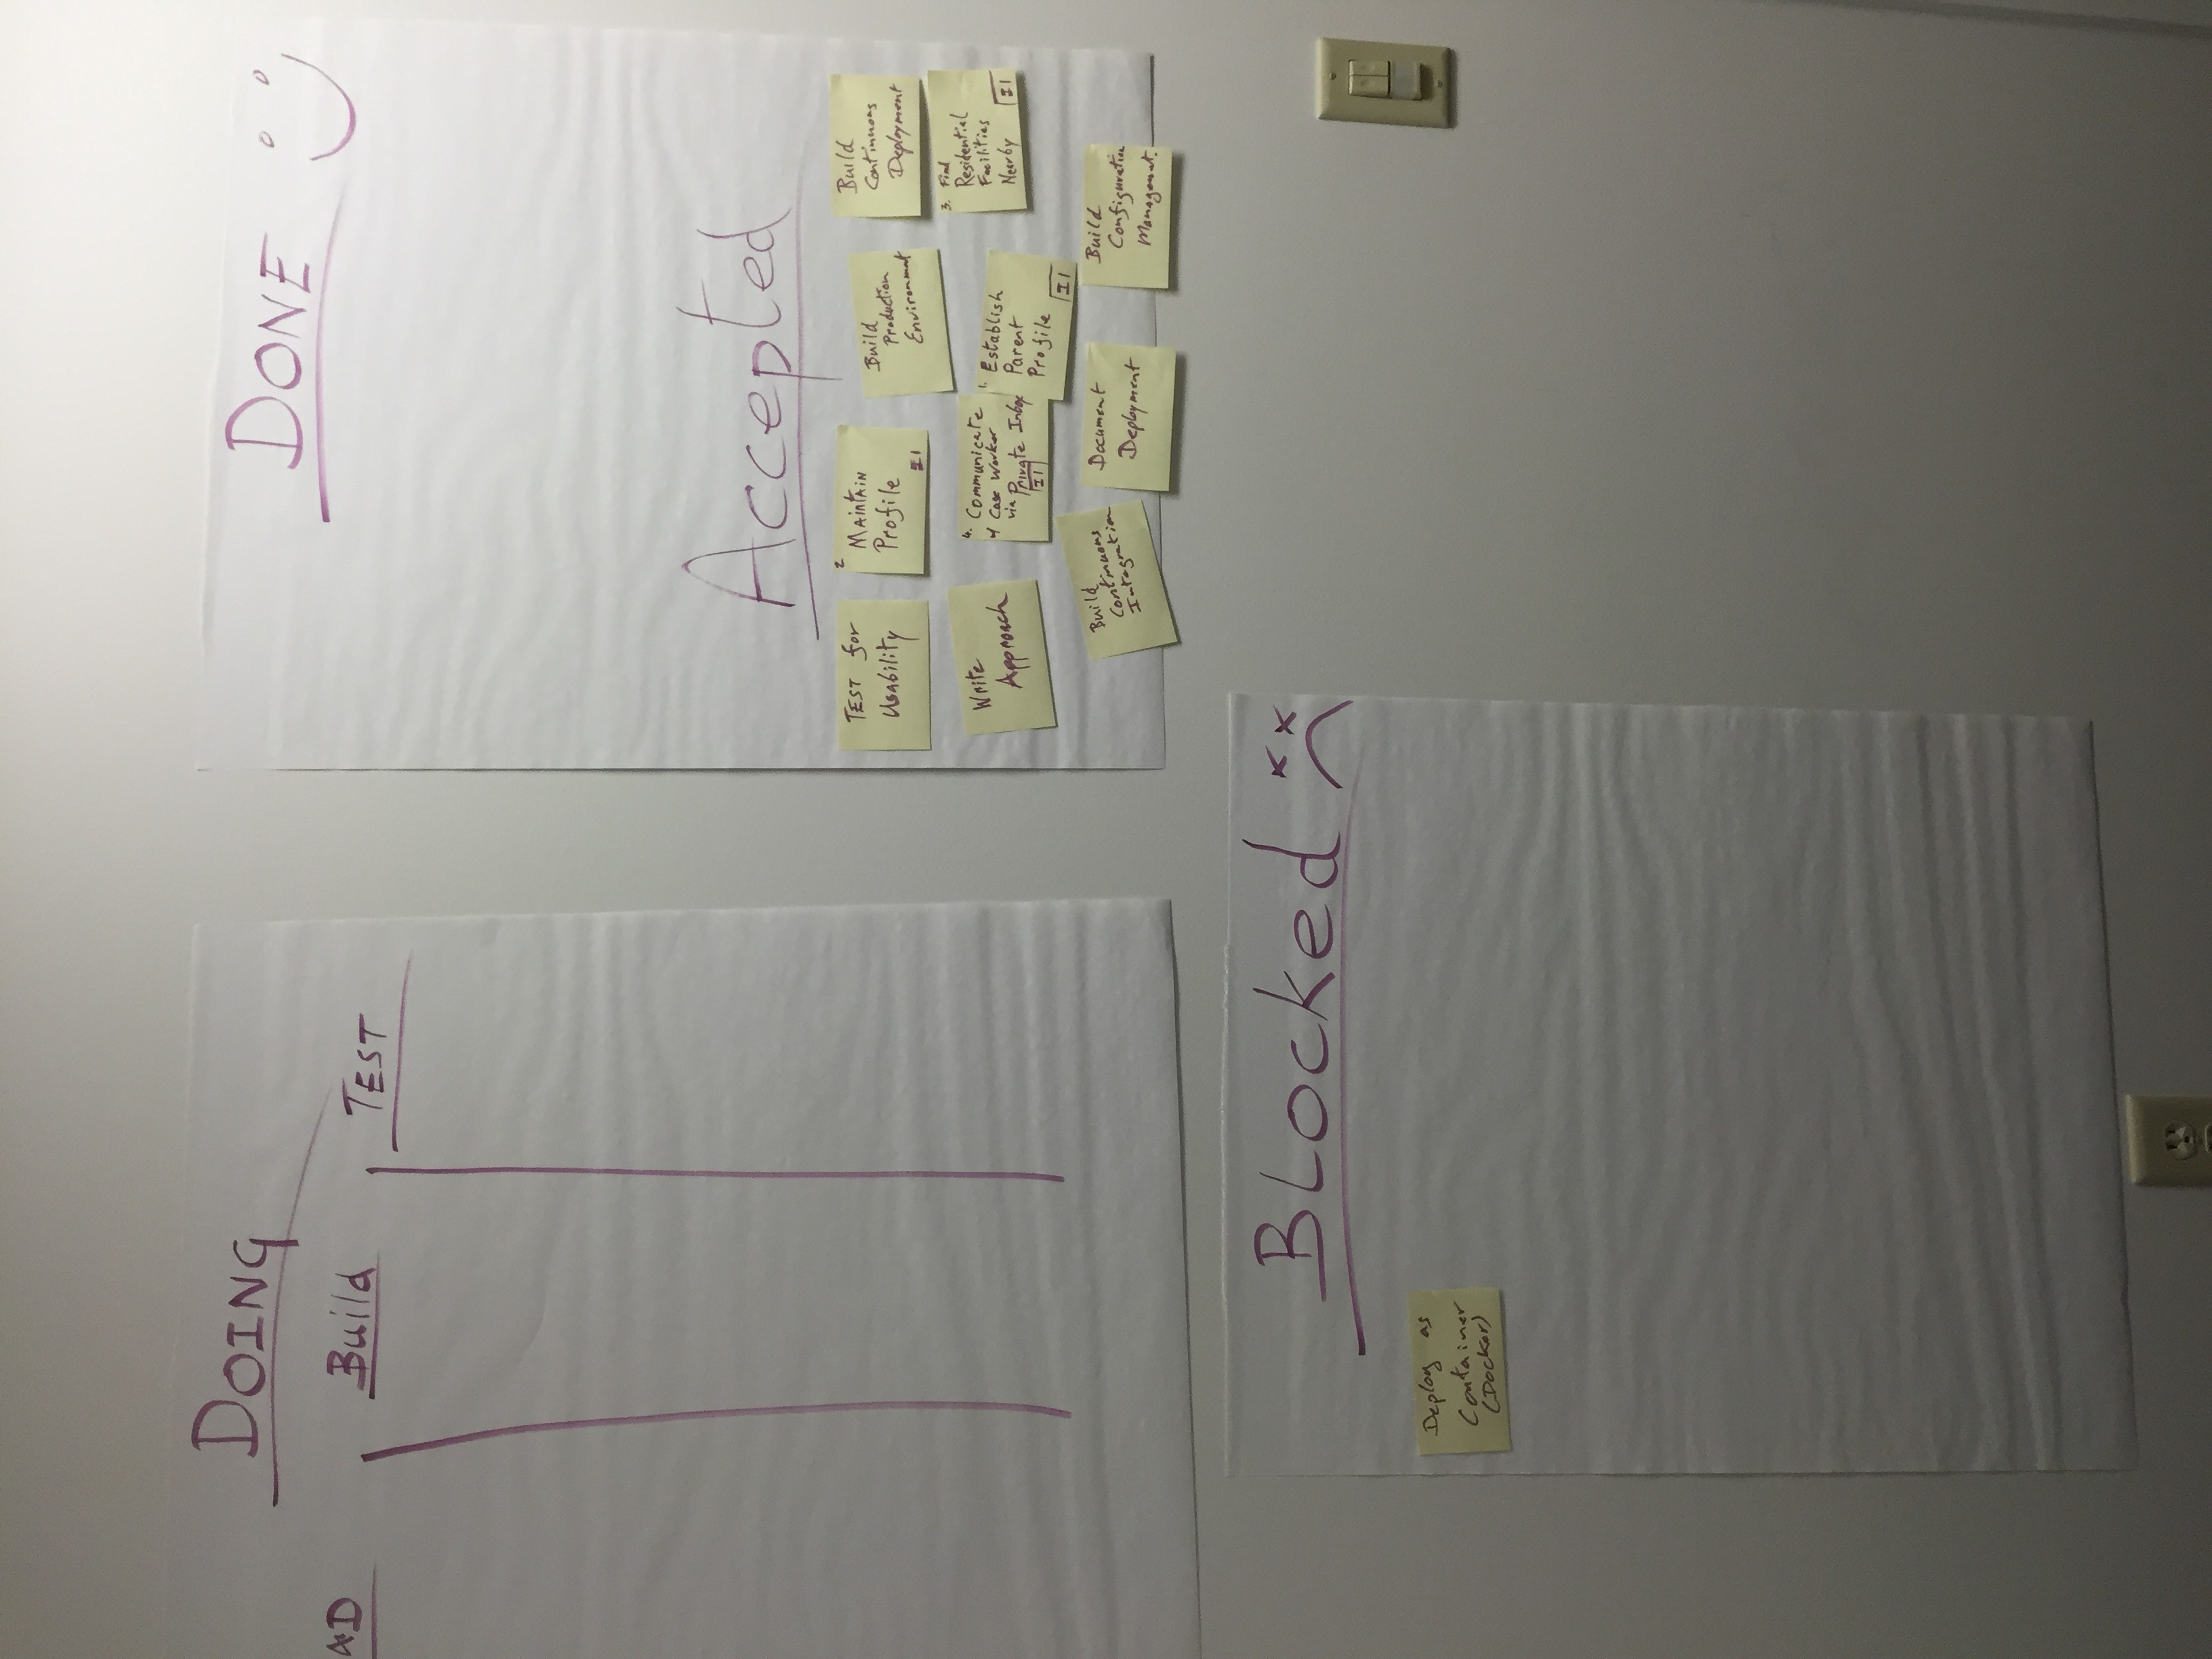 DOING
AD
Build
TEST
DONE
Accepted
TEST for
Usability
2
MAINTAIN
Profile
I1
Build
Production
Environment
Build
Continuous
Deployment
Write
Approach
4. Communicate
w/ Case Worker
via Private Inbox
I1
1. Establish
Parent
Profile
I1
3. Find
Residential
Facilities
Nearby
I1
Build
Continuous
Integration
Document
Deployment
Build
Configuration
Managemnt.
Blocked
Deploy as
Container
(Docker)